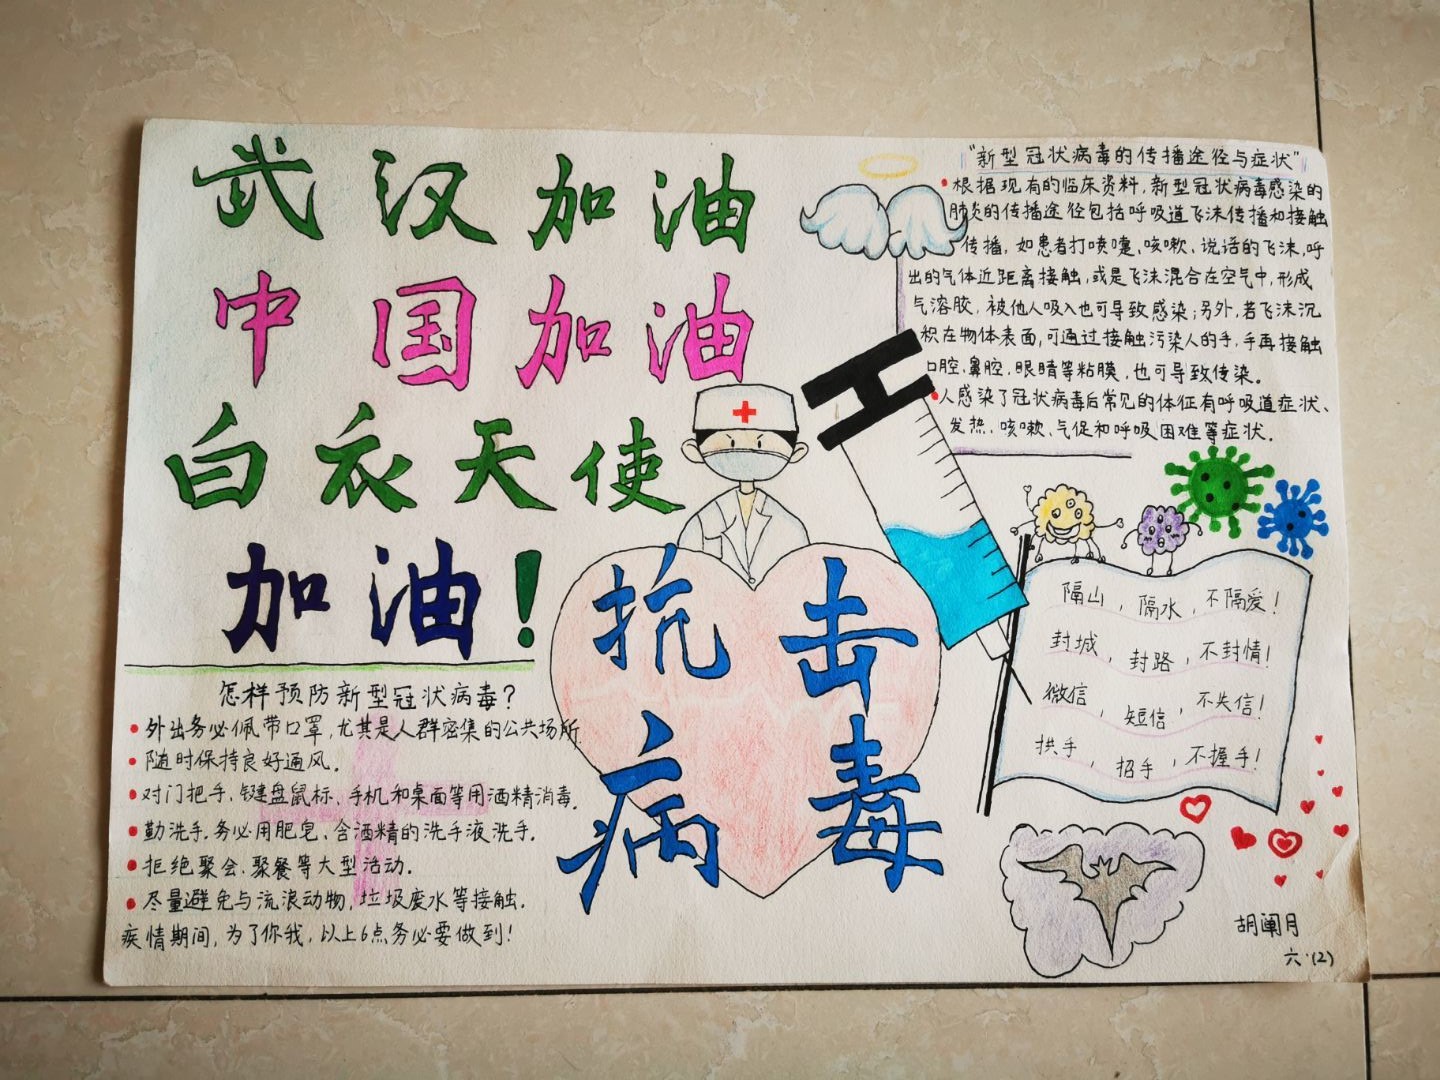 武汉加油
中国加油
白衣天使
加油！
怎样预防新型冠状病毒？
外出务必佩带口罩，尤其是人群密集的公共场所.
随时保持良好通风。
对门把手、键盘鼠标、手机和桌面等用酒精消毒。
勤洗手.务必用肥皂、含酒精的洗手液洗手。
拒绝聚会、聚餐等大型活动.
尽量避免与流浪动物，垃圾废水等接触.
疾情期间，为了你我，以上6点务必要做到！
抗击
病毒
“新型冠状病毒的传播途径与症状”
根据现有的临床资料，新型冠状病毒感染的
肺炎的传播途径包括呼吸道飞沫传播和接触
传播，如患者打喷嚏、咳嗽、说话的飞沫，呼
出的气体近距离接触，或是飞沫混合在空气中，形成
气溶胶，被他人吸入也可导致感染；另外，若飞沫沉
积在物体表面，可通过接触污染人的手，手再接触
口腔、鼻腔、眼睛等粘膜，也可导致传染。
人感染了冠状病毒后常见的体征有呼吸道症状、
发热、咳嗽、气促和呼吸困难等症状.
隔山，隔水，不隔爱！
封城，封路，不封情！
微信，短信，不失信！
拱手，招手，不握手！
胡阑月
六·(2)